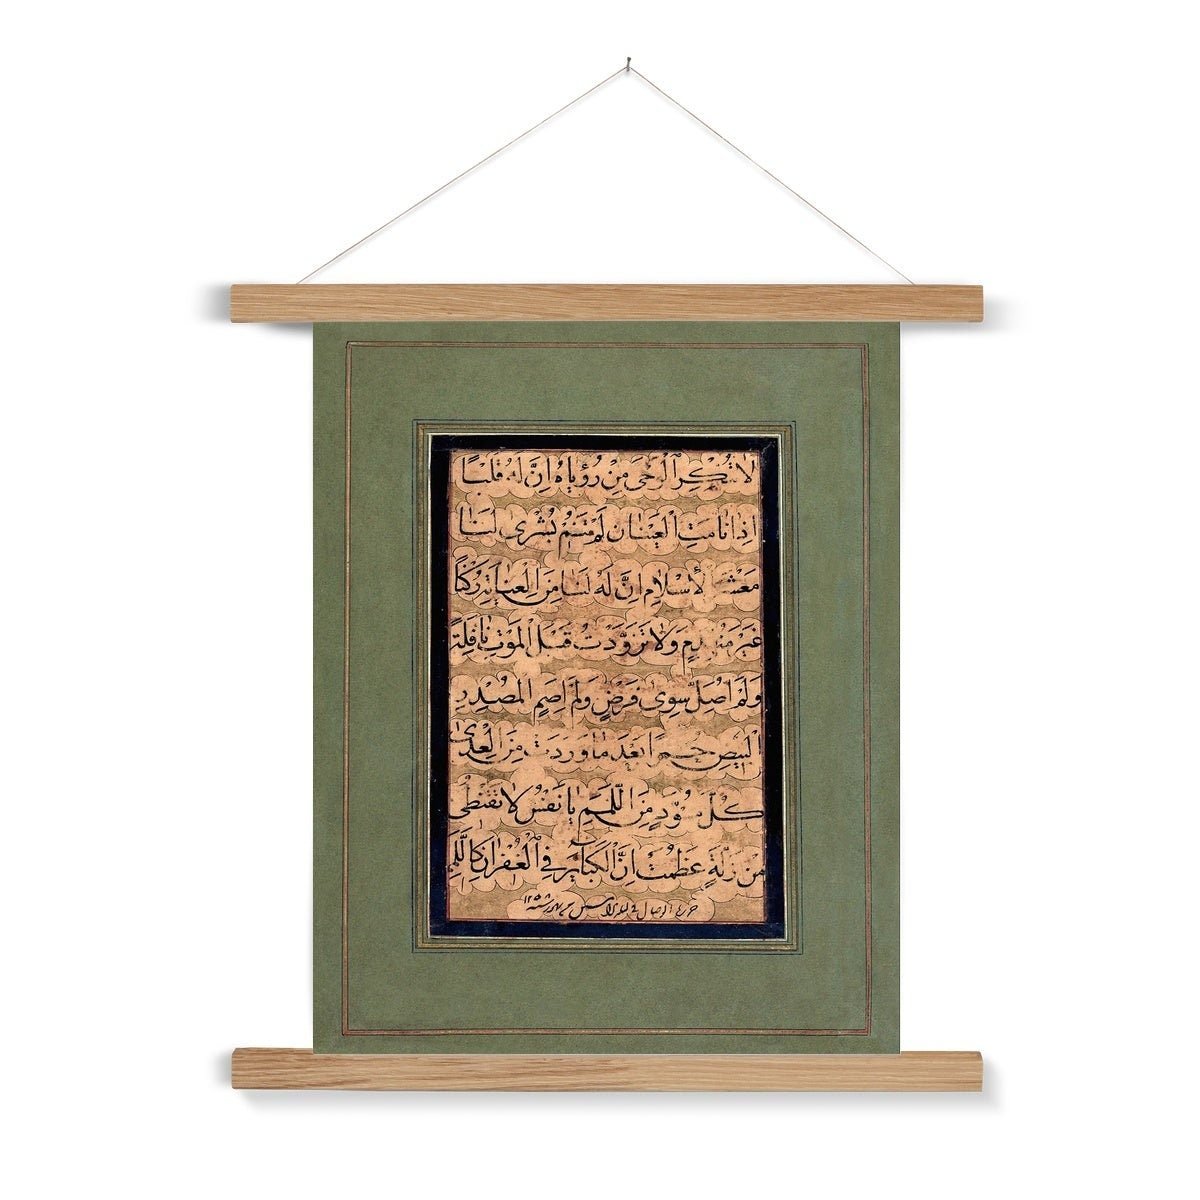 لَا تُنْكِرِ الْوَحْيَ مِنْ رُؤْيَاهُ اِنَّ لَهُ قَلْبًا
اِذَا نَامَتِ الْعَيْنَانِ لَمْ يَنَمِ بُشْرٰى لَنَا
مَعْشَرَ الْاِسْلَامِ اِنَّ لَهُ لَنَا مِنَ الْعِنَايَةِ رُكْنًا
غَيْرَ مُنْهَدِمٍ وَلَا تَزَوَّدْتُ قَبْلَ الْمَوْتِ نَافِلَةً
وَلَمْ اُصَلِّ سِوٰى فَرْضٍ وَلَمْ اَصُمِ الْمُصْدِرِ
الْبِيضِ حُمْرًا بَعْدَ مَا وَرَدَتْ مِنَ الْعِدٰى
كُلَّ مُسْوَدٍّ مِنَ اللِّمَمِ يَا نَفْسُ لَا تَقْنَطِي
مِنْ زَلَّةٍ عَظُمَتْ اِنَّ الْكَبَائِرَ فِي الْغُفْرَانِ كَاللَّمَمِ